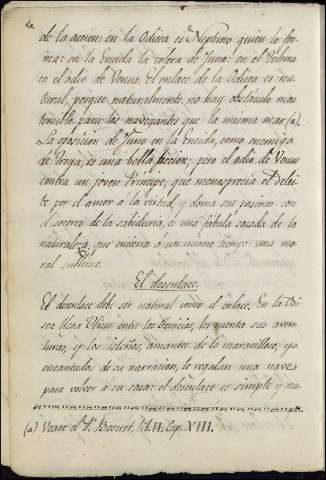 de la accion: en la Odisea es Neptuno quien lo for-
ma: en la Eneida la colera de Juno: en el Telema-
co el odio de Venus. El enlace de la Odisea es na-
tural, porque naturalmente no hay obstáculo mas
temible para los navegantes que la misma mar (a).
La oposicion de Juno en la Eneida, como enemiga
de Troya, es una bella ficcion; pero el odio de Venus
contra un joven Principe, que menosprecia el Delei-
te por el amor a la virtud, y doma sus pasiones con
el socorro de la sabiduria, es una fábula sacada de la
naturaleza, que encierra a un mismo tiempo una mo-
ral sublime.
El desenlace.
El desenlace debe ser natural como el enlace. En la Odi-
sea llega Ulises entre los Feaicios, les cuenta sus aven-
turas, y los isleños, amantes de lo maravilloso, y
encantados de su narracion, le regalan una nave
para volver a su casa: el desenlace es simple y na-
(a) Vease el P. Bossuet, lib. II, Cap. XIII.